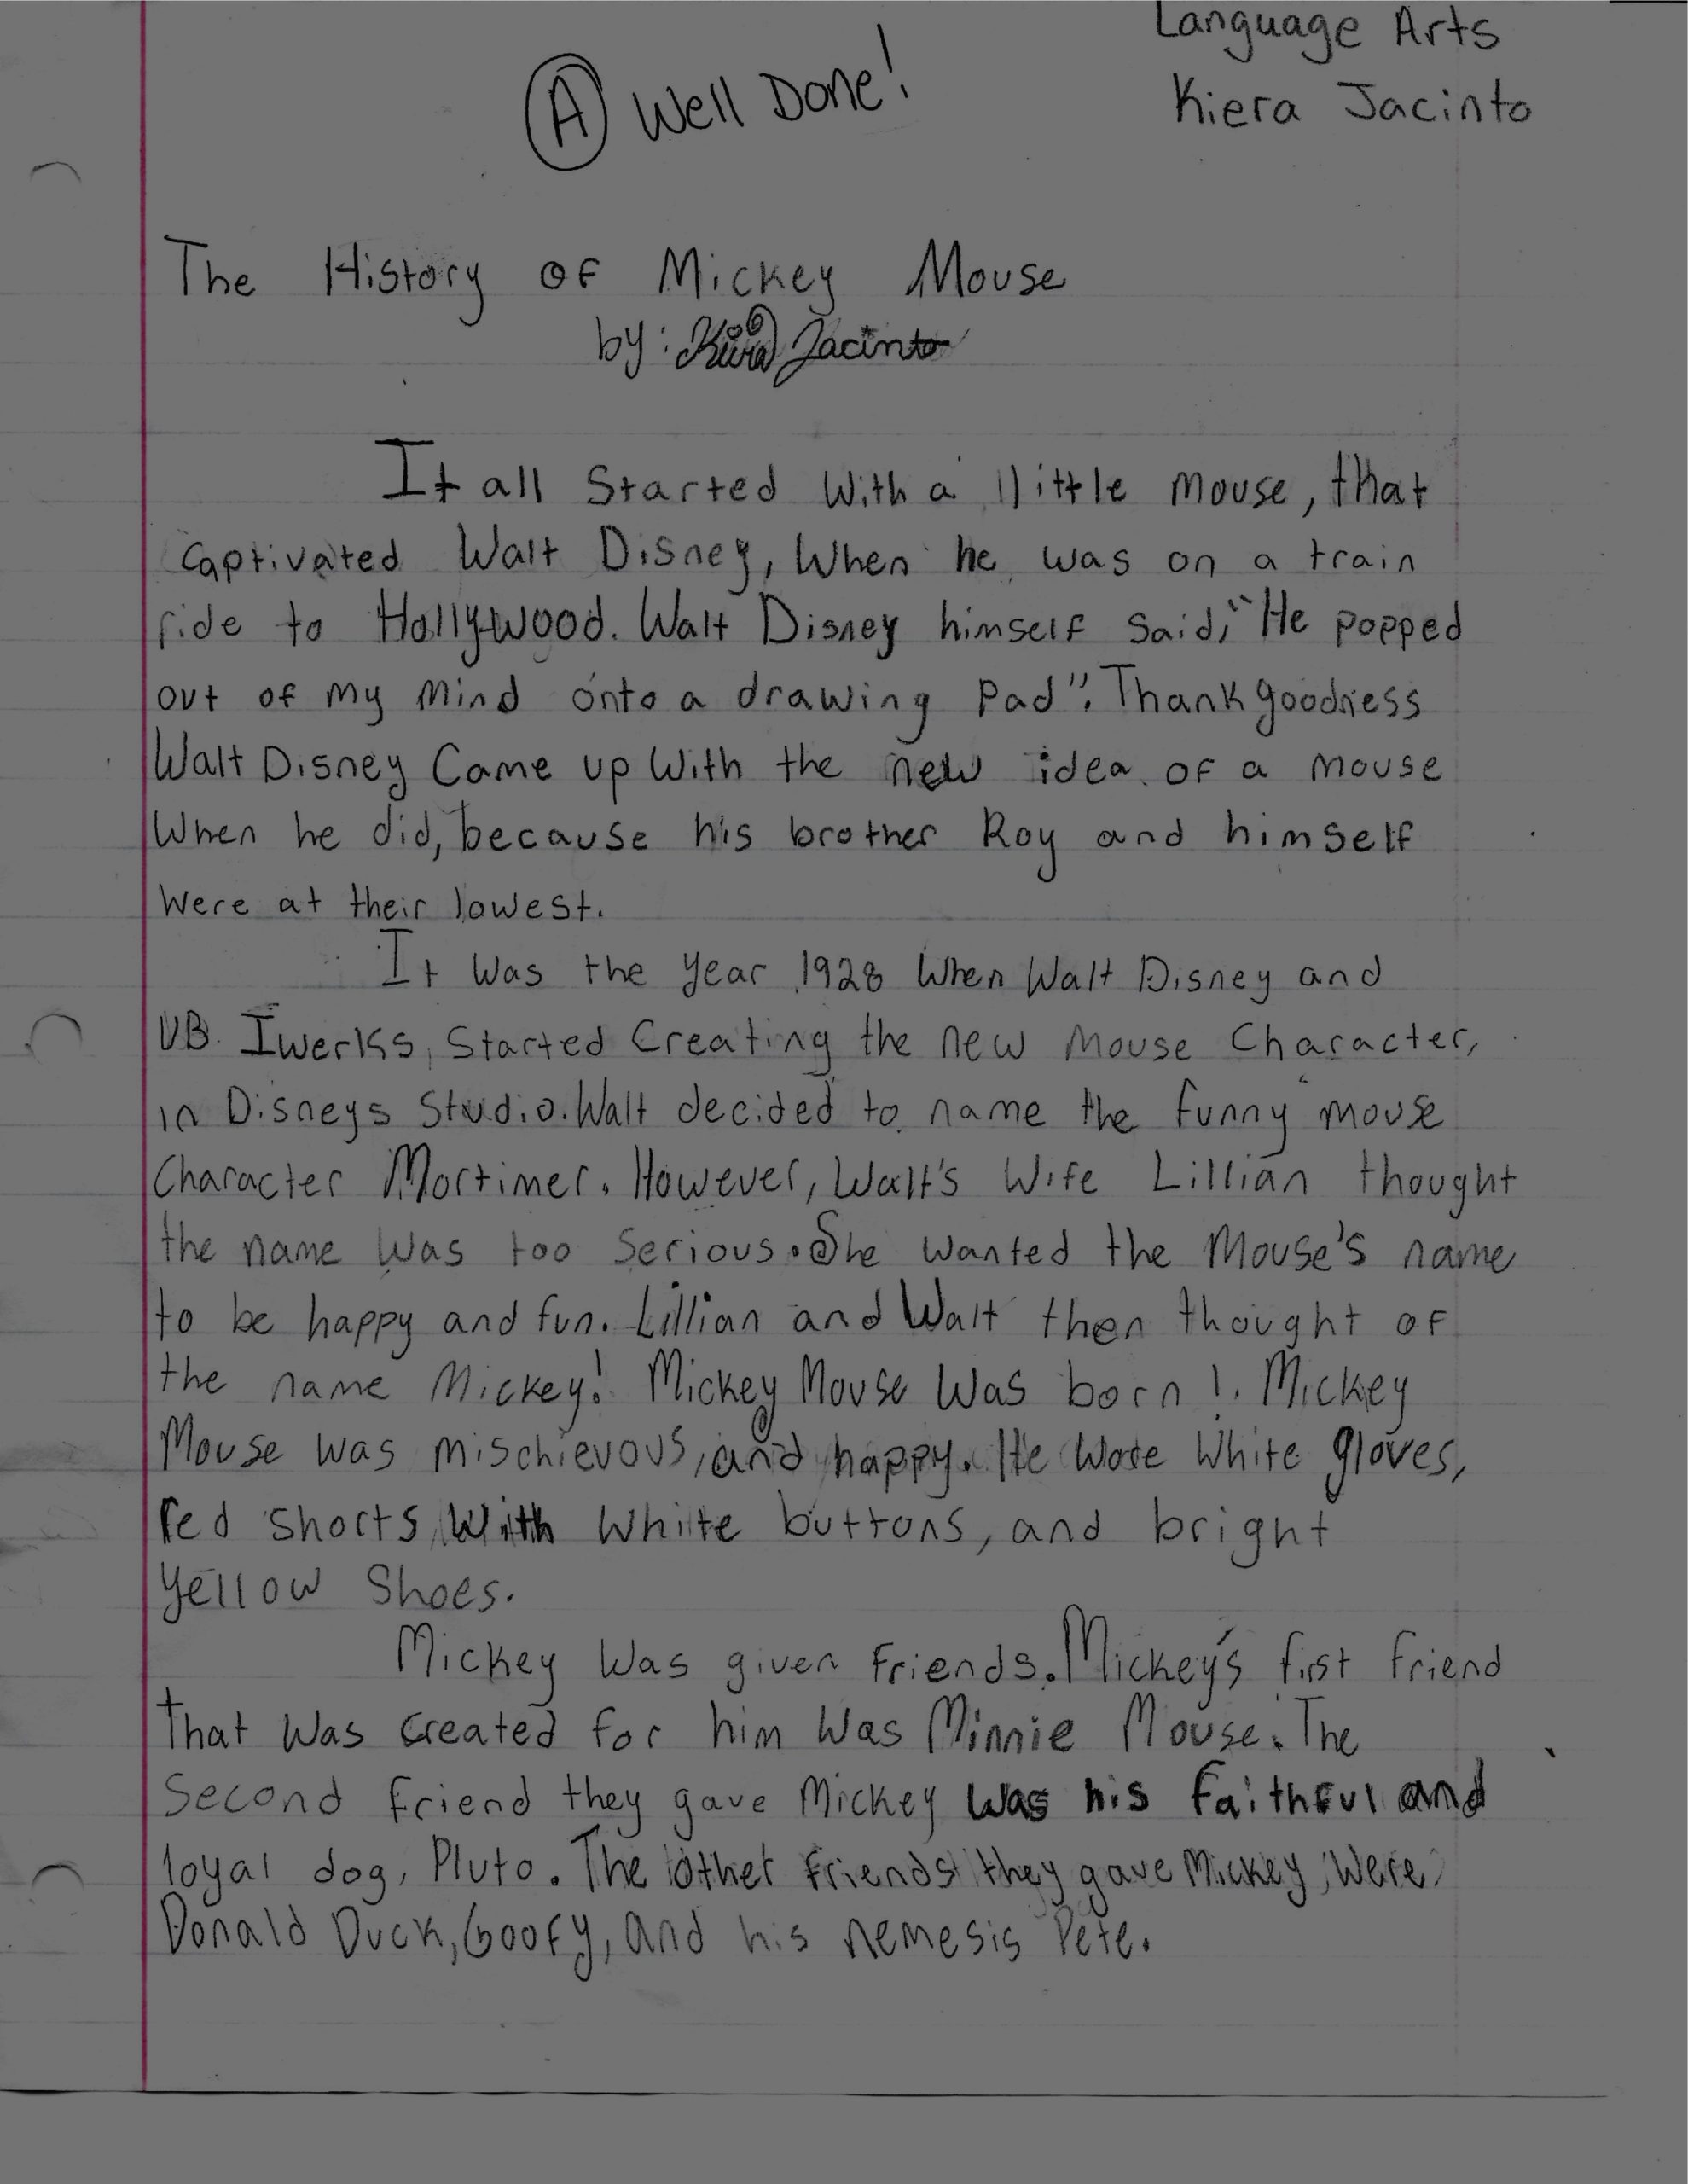 Language Arts
Kiera Jacinto
A Well Done!
The History of Mickey Mouse
by: Kiera Jacinto
It all started with a little mouse, that
captivated Walt Disney, when he was on a train
ride to Hollywood. Walt Disney himself said, "He popped
out of my mind onto a drawing pad". Thank goodness
Walt Disney came up with the new idea of a mouse
when he did, because his brother Roy and himself
were at their lowest.
It was the year 1928 when Walt Disney and
UB Iwerks, started creating the new mouse character,
in Disneys studio. Walt decided to name the funny mouse
character Mortimer. However, Walt's wife Lillian thought
the name was too serious. She wanted the Mouse's name
to be happy and fun. Lillian and Walt then thought of
the name Mickey! Mickey Mouse was born!. Mickey
Mouse was mischievous, and happy. He wore white gloves,
red shorts with white buttons, and bright
yellow shoes.
Mickey was given friends. Mickey's first friend
that was created for him was Minnie Mouse. The
second friend they gave Mickey was his faithful and
loyal dog, Pluto. The other friends they gave Mickey, were
Donald Duck, Goofy, and his nemesis Pete.